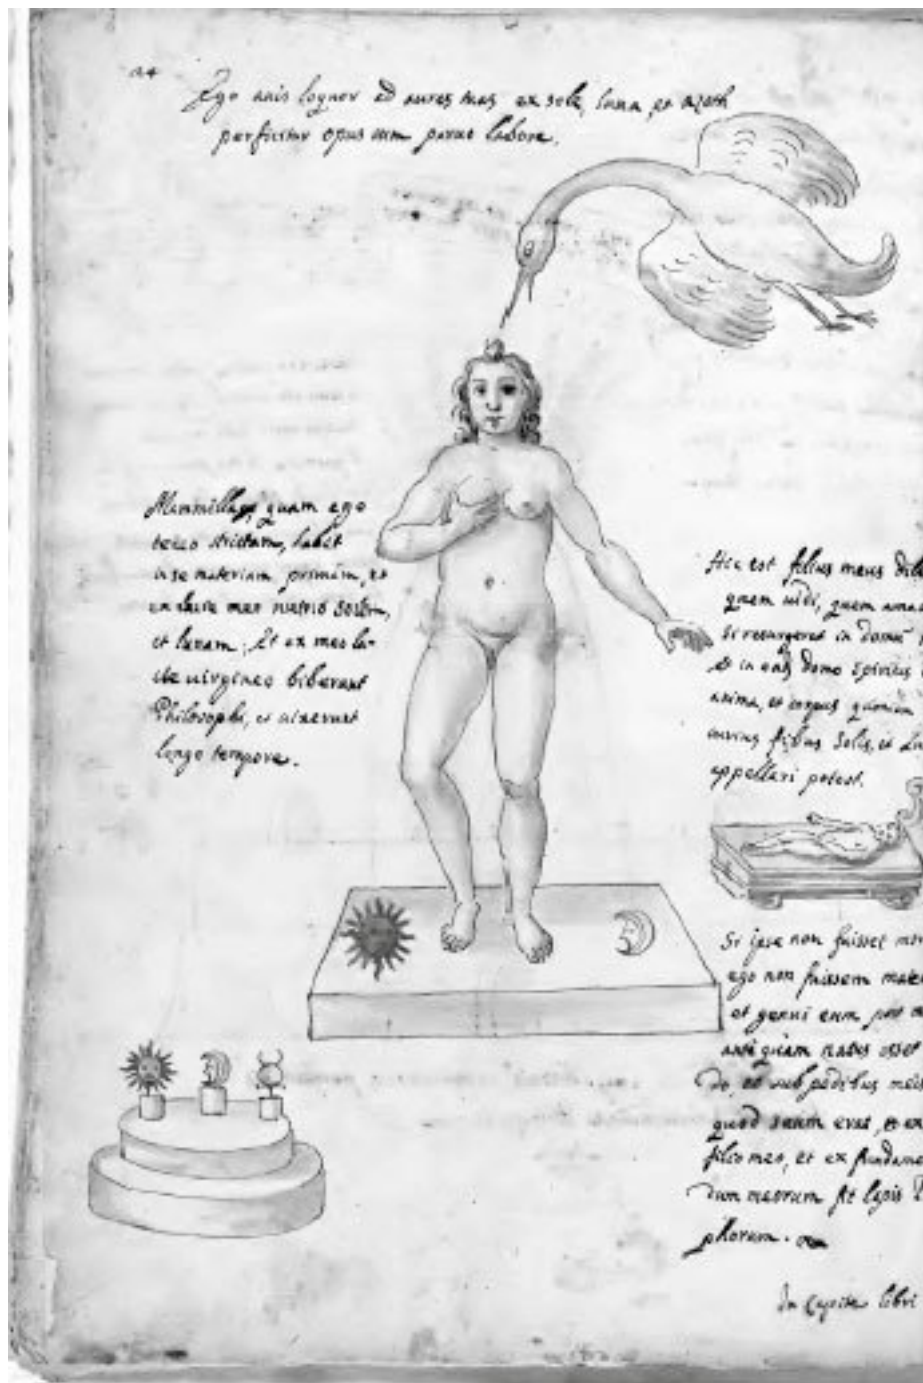 24
Ego avis loquor ad aures tuas, ex sole, luna, et azoth
perficitur opus cum parvo labore.
quam ego
teneo strictam, habet
in se materiam primam, et
ex lacte meo nutrio solem,
et lunam; Et ex meo la-
cte virgineo biberunt
Philosophi, et vixerunt
longo tempore.
Hic est filius meus
quem vidi, quem
Si resurgeret in domū
et in domo spiritus
anima, et corpus quoniam
filius Solis, et
appellari potest.
Si ipse non fuisset
ego non fuissem
et genui eum post
antequam natus esset
sub pedibus meis
quod suum erat, et ex
filio meo, et ex
fit lapis
phorum.
In capite libri